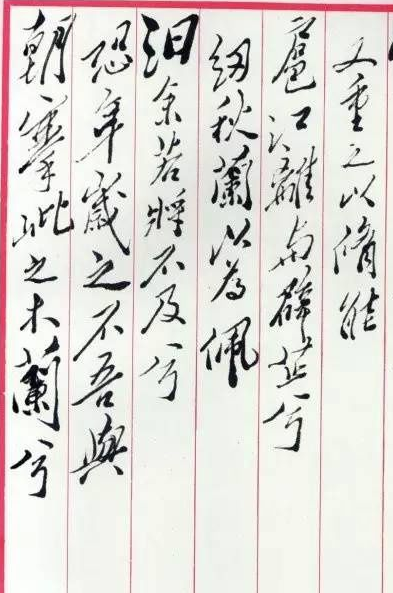 又重之以脩能
扈江離与辟芷兮
紉秋蘭以为佩
汩余若将不及兮
恐年歲之不吾與
朝搴阰之木蘭兮